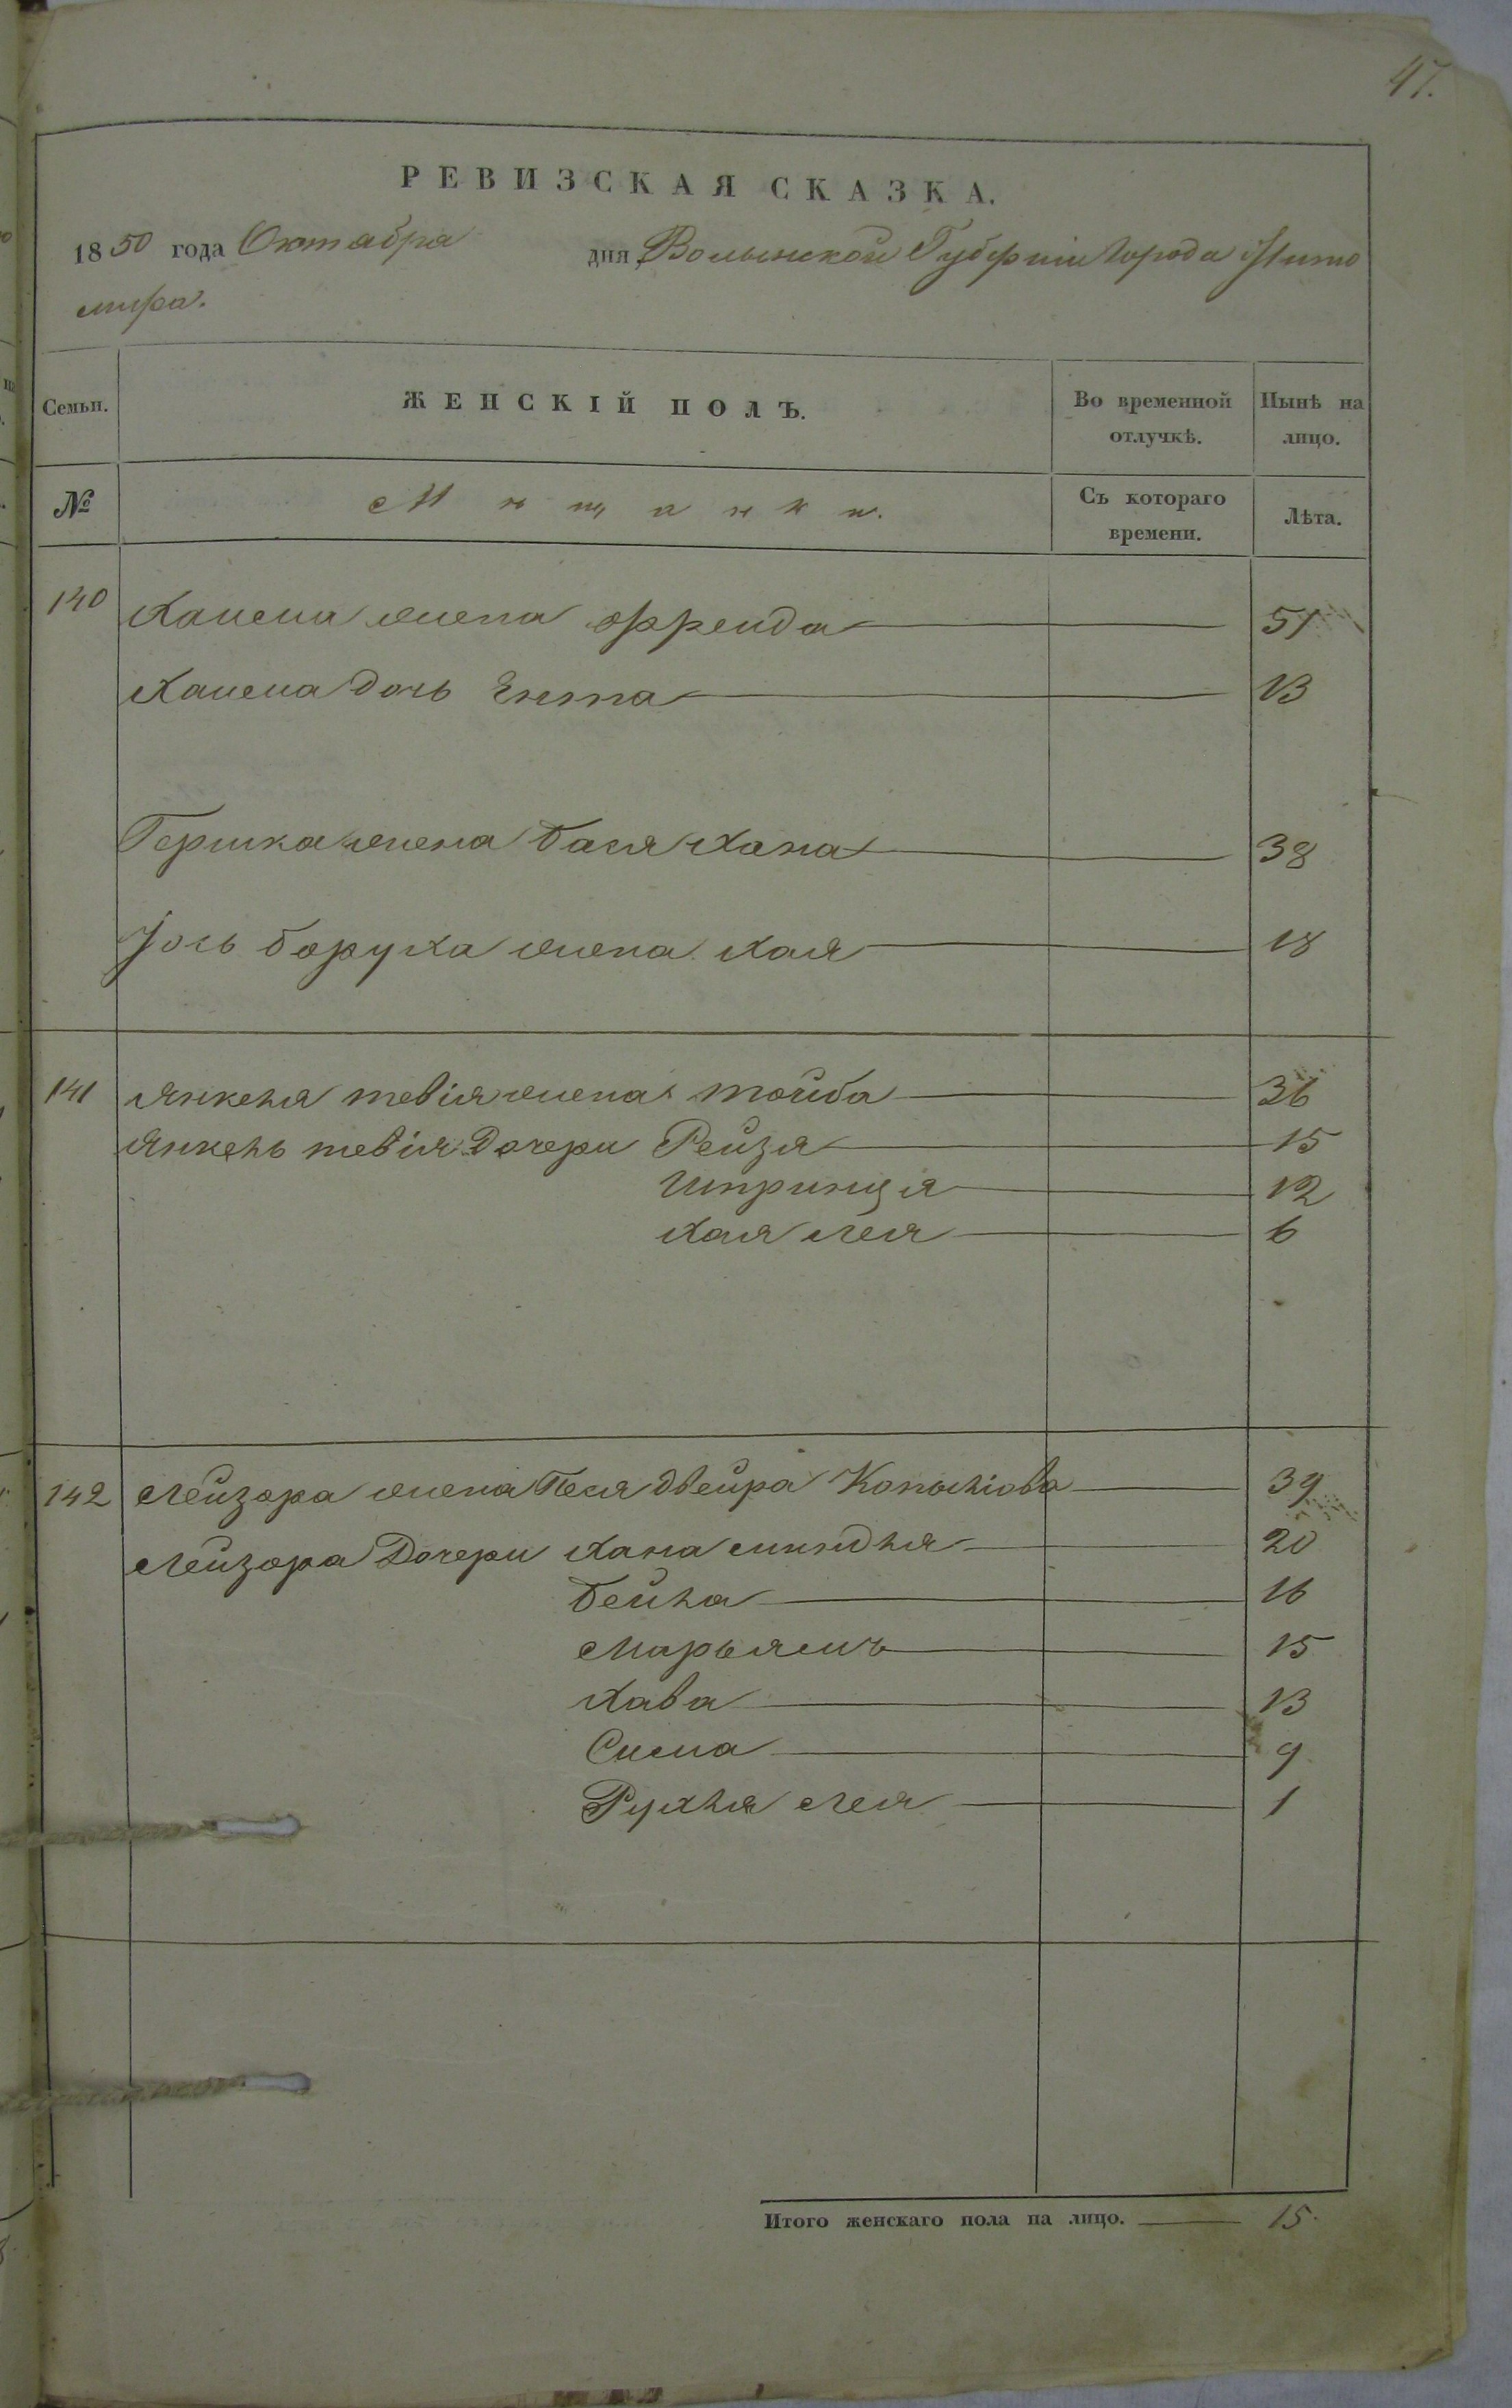 47.
РЕВИЗСКАЯ СКАЗКА.
1850 года Октабра дня Волынской Губерніи Города Жито
мира.
Семьи. ЖЕНСКІЙ ПОЛЪ. Во временной отлучкѣ. Нынѣ на лицо.
№ Мѣщанки. Съ котораго времени. Лѣта.
140 Хаима жена Фрейда 51
Хаима дочь Ента 13
Гершка жена Бася Хана 38
Іось Боруха жена Хая 18
141 Янкеля тевія жена тойба 36
Янкель тевія Дочери Рейзя 15
Шпринця 12
Хая лея 6
142 Лейзора жена Песя двейра 39
Лейзора Дочери Хана миндля 20
Бейла 16
Марьямъ 15
Хава 13
Сима 9
Рухля лея 1
Итого женскаго пола на лицо. 15.